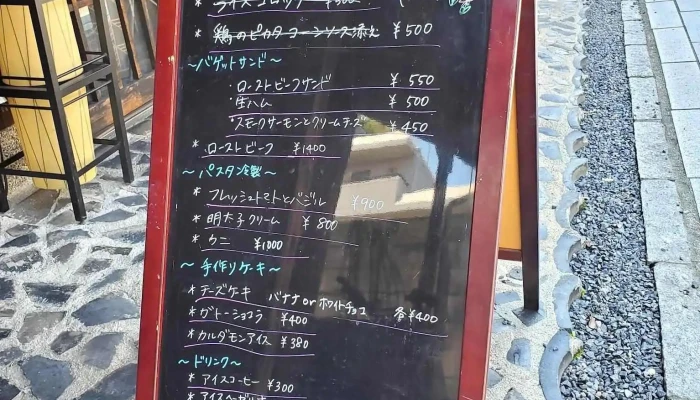 * ライスコロッケ ¥300
* 鶏のピカタ コーンソース添え ¥500
～バゲットサンド～
・ローストビーフサンド ¥550
・生ハム ¥500
・スモークサーモンとクリームチーズ ¥450
* ローストビーフ ¥1400
～パスタ冷製～
* フレッシュトマトとバジル ¥900
* 明太子クリーム ¥800
* ウニ ¥1000
～手作りケーキ～
* チーズケーキ バナナorホワイトチョコ 各¥400
* ガトーショコラ ¥400
* カルダモンアイス ¥380
～ドリンク～
* アイスコーヒー ¥300